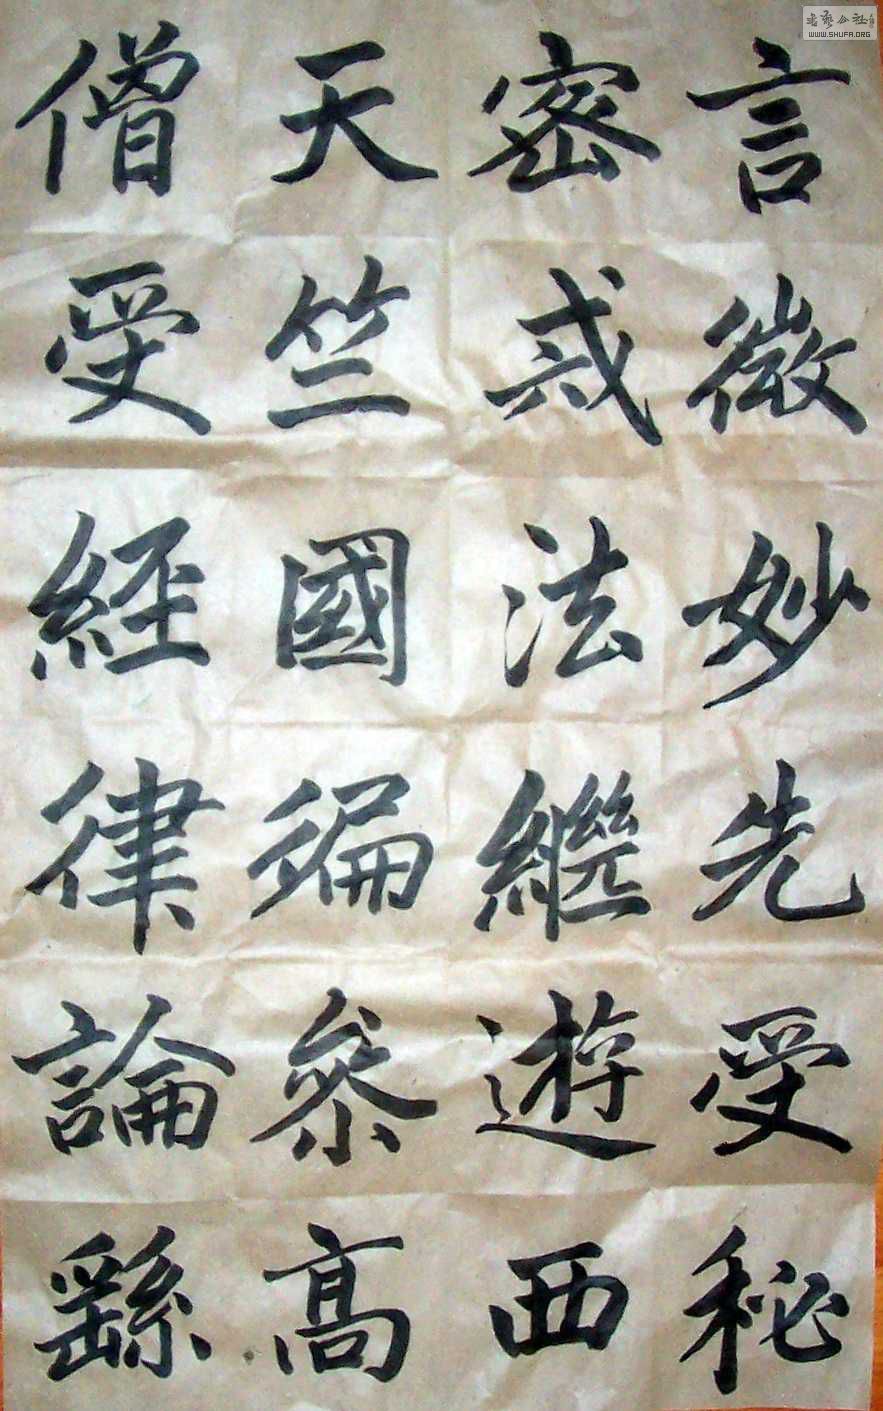 言微妙先受秘
密戒法繼遊西
天竺國徧參高
僧受經律論繇
書藝公社
WWW.SHUFA.ORG